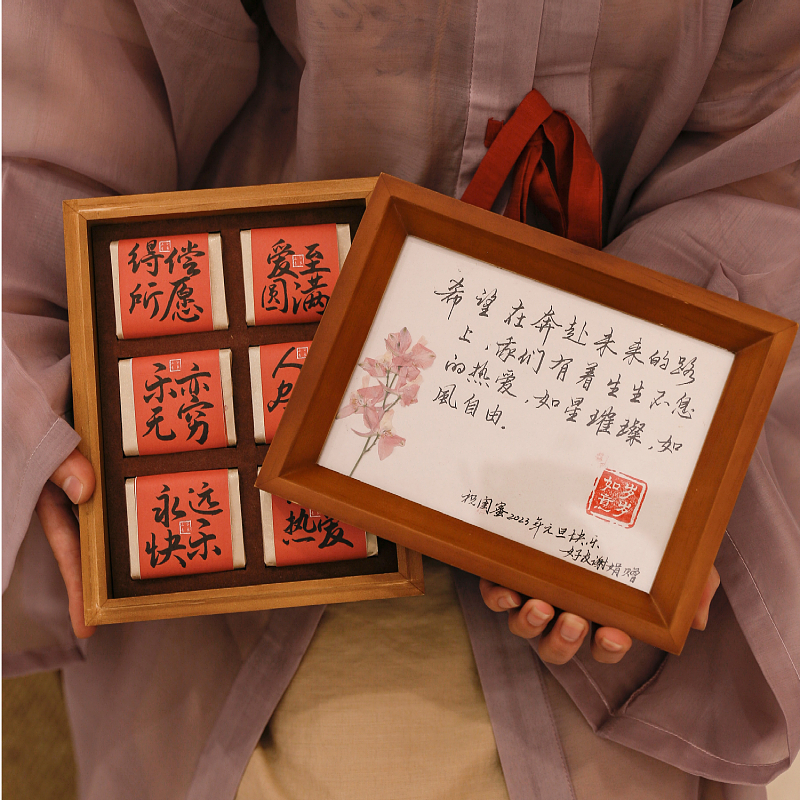 得偿
所愿
爱至
圆满
乐亦
无穷
人
永远
快乐
热爱
希望在奔赴未来的路
上，我们有着生生不息
的热爱，如星璀璨，如
風自由。
岁岁
如意
祝闺蜜2023年元旦快乐
好友谢娟赠